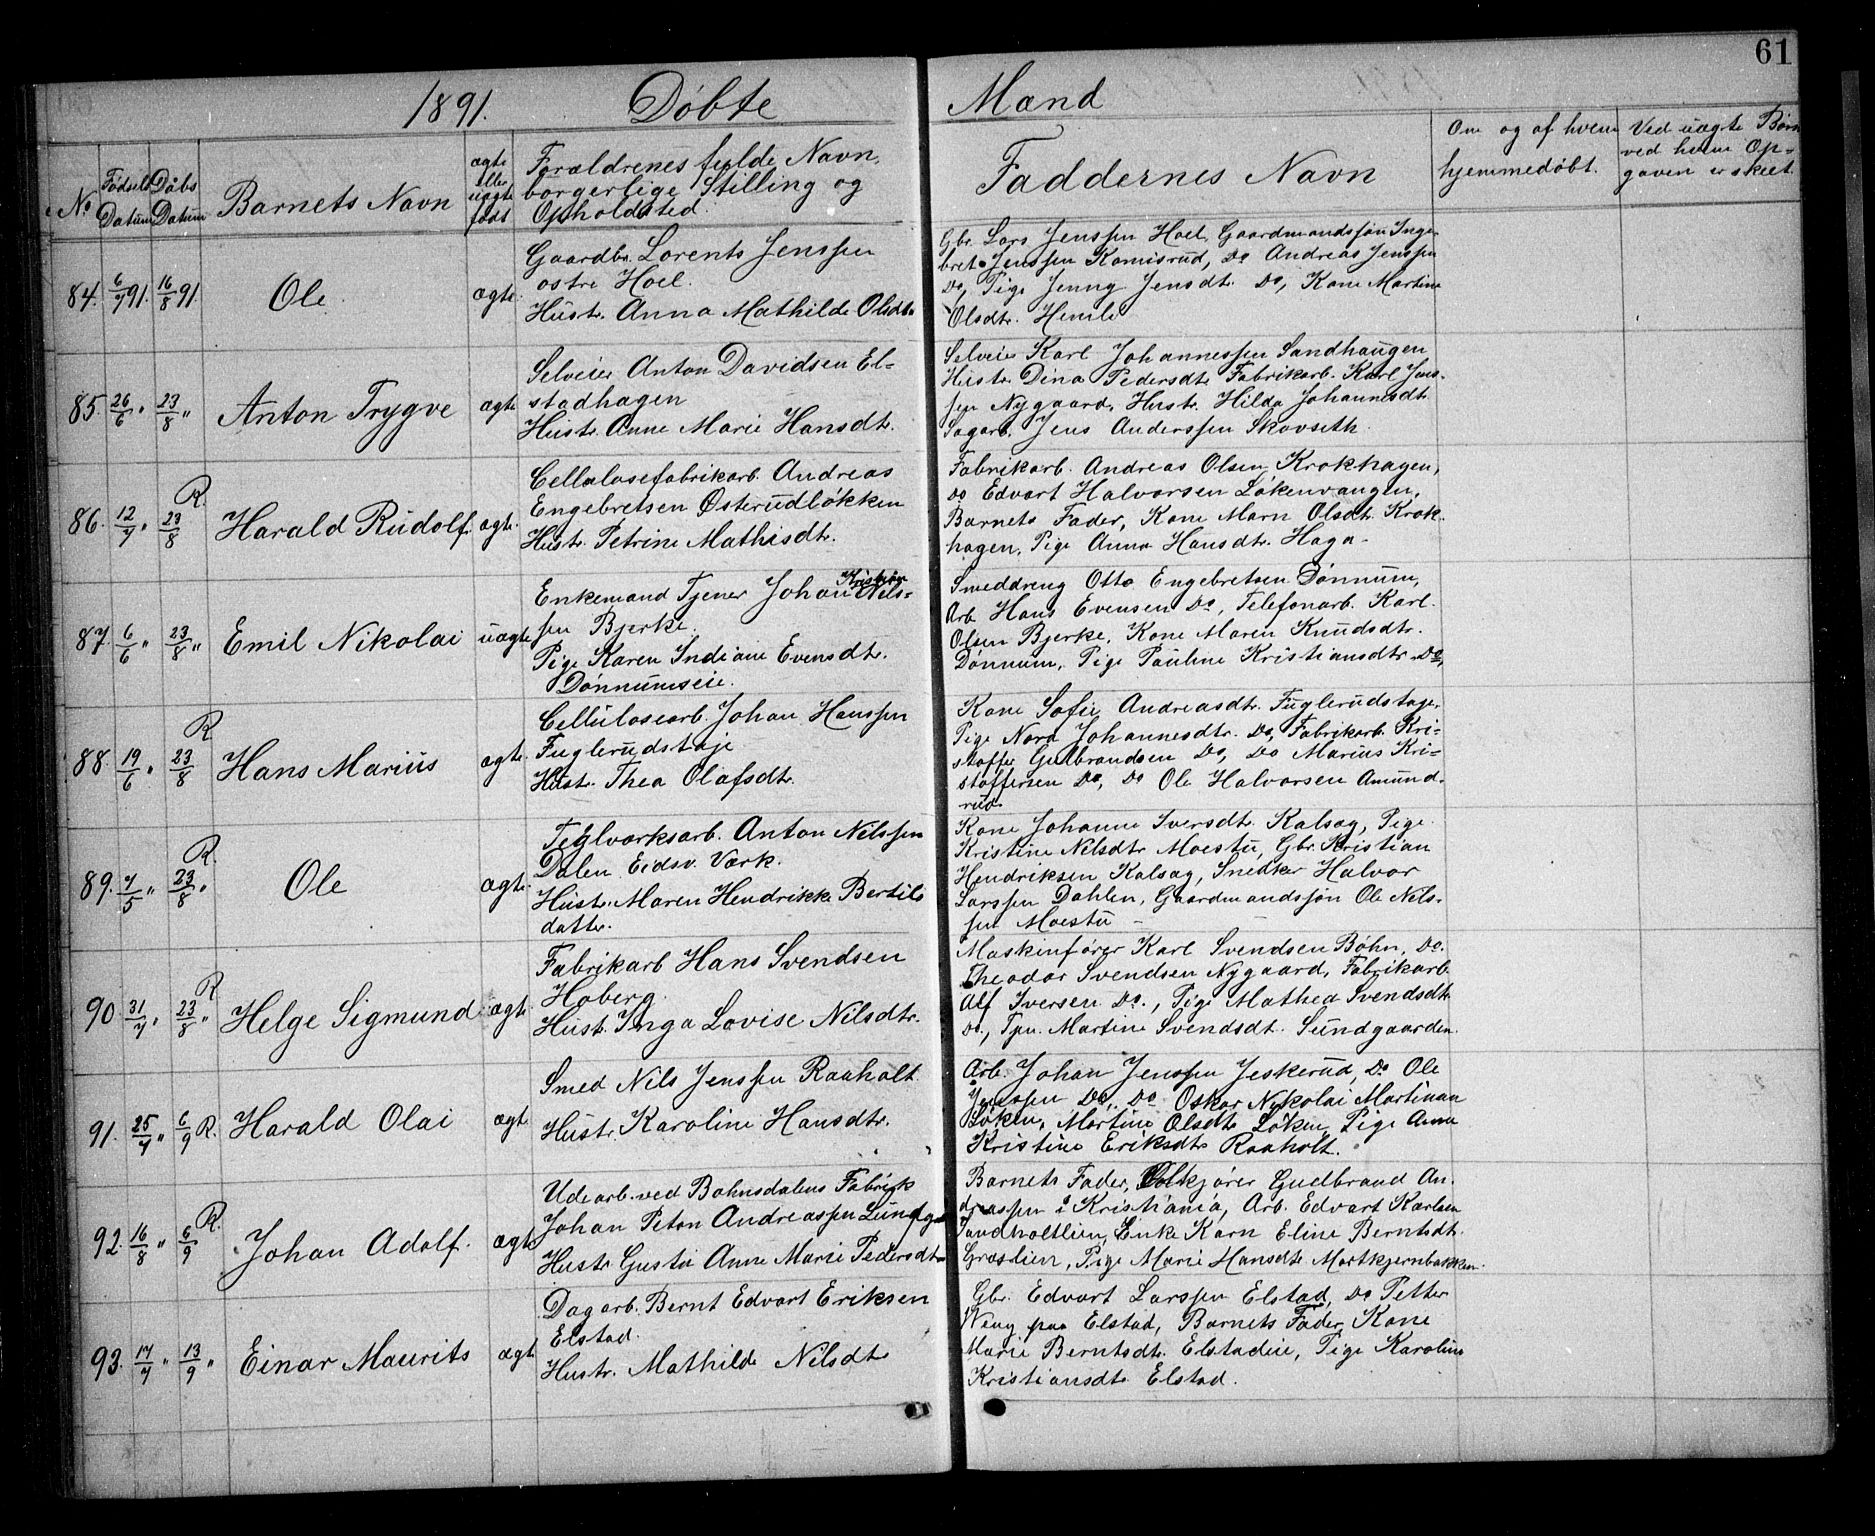 61
1891. Døbte Mænd
No
Fødsels Datum
Døbs Datum
Barnets Navn
ægte eller uægte født
Forældrenes fulde Navn,
borgerlige Stilling og
Opholdsted.
Faddernes Navn
Om og af hvem
hjemmedøbt.
Ved uægte Børn
ved hvem Op=
gaven er skeet.
84. 6/7 91. 16/8 91. Ole. ægte.
Gaardbr. Lorents Jenssen
østre Hoel.
Hustr. Anna Mathilde Olsdtr.
Gbr. Lars Jenssen Hoel, Gaardmandssøn Inge=
bret Jenssen Komisrud, Do Andreas Jenssen
Do, Pige Jenny Jensdtr. Do, Kone Martine
Olsdtr. Hemli
85. 26/6 " 23/8 " Anton Trygve ægte
Selveier Anton Davidsen El=
stadhagen
Hustr. Anne Marie Hansdtr.
Selveier Karl Johannessen Sandhaugen
Hustr. Dina Pedersdtr. Fabrikarb. Karl Jens=
sen Nygaard, Hustr. Hilda Johannesdtr.
Sagarb. Jens Anderssen Skovseth.
86. 12/7 " 23/8 R. Harald Rudolf. ægte.
Cellulosefabrikarb. Andreas
Engebretsen Østerudløkken
Hustr. Petrine Mathisdtr.
Fabrikarb. Andreas Olsen Krokhagen,
Do Edvart Halvorsen Løkenvangen,
Barnets Fader, Kone Marn Olsdtr. Krok=
hagen, Pige Anna Hansdtr. Haga.
87. 6/6 " 23/8 " Emil Nikolai uægte
Enkemand Tjener Johan Kristian Nils=
sen Bjerke.
Pige Karen Indiane Evensdtr.
Dønnumseie.
Smeddreng Otto Engebretsen Dønnum,
Arb Hans Evensen Do, Telefonarb. Karl.
Olsen Bjerke, Kone Maren Knudsdtr.
Dønnum, Pige Pauline Kristiansdtr. Do,
88. 19/6 " 23/8 R Hans Marius ægte.
Cellulosearb. Johan Hanssen
Fuglerudstøje
Hustr. Thea Olafsdtr.
Kone Sofie Andreasdtr. Fuglerudstøje,
Pige Nora Johannesdtr. Do, Fabrikarb. Kri=
stoffer Gulbrandsen Do, Do Marius Kri=
stoffersen Do, Do Ole Halvorsen Amund=
rud.
89. 7/5 " 23/8 " R. Ole ægte.
Teglværksarb. Anton Nilssen
Dalen Eidsv. Værk.
Hustr. Maren Hendrikke Bertils
datter.
Kone Johanne Iversdtr. Kalsag, Pige
Kristine Nilsdtr Moestu, Gbr. Kristian
Hendriksen Kalsag, Snedker Halvor
Larssen Dahlen, Gaardmandssøn Ole Nils=
sen Moestu
90. 31/7 " 23/8 " R Helge Sigmund ægte
Fabrikarb Hans Svendsen
Hoberg.
Hust. Inga Lovise Nilsdtr.
Maskinfører Karl Svendsen Bøhn, Do.
Theodor Svendsen Nygaard, Fabrikarb.
Alf Iversen Do., Pige Mathea Svendsdtr.
Do., Tpn. Martine Svendsdt. Sundgaarden.
91. 25/7 " 6/9 R. Harald Olai ægt.
Smed Nils Jenssen Raaholt
Hustr Karoline Hansdtr.
Arb. Johan Jenssen Jeskerud, Do Ole
Jenssen Do, Do Oskar Nykolai Martinan
Løken, Martine Olsdtr Løken, Pige Anne
Kristine Eriksdtr Raaholt.
92. 16/8 " 6/9 R. Johan Adolf. ægte
Udearb. ved Bøhnsdalens Fabrik
Johan Peton Andreassen
Hustr Gusta Anne Marie Pedersdtr
Barnets Fader, Gudbrand An=
dreassen i Kristiania, Arb. Edvart Karlsen
Sandholtlien, Enke Karn Eline Berntsdt.
Græslien, Pige Marie Hansdtr Mortkjernbakken.
93. 17/7 " 13/9 " Einar Maurits ægt.
Dagarb. Bernt Edvart Eriksen
Elstad.
Hustr. Mathilde Nilsdtr
Gbr. Edvart Larssen Elstad, Do Petter
Weng paa Elstad, Barnets Fader, Kone
Marie Berntsdtr. Elstadeie, Pige Karoline
Kristiansdtr Elstad.